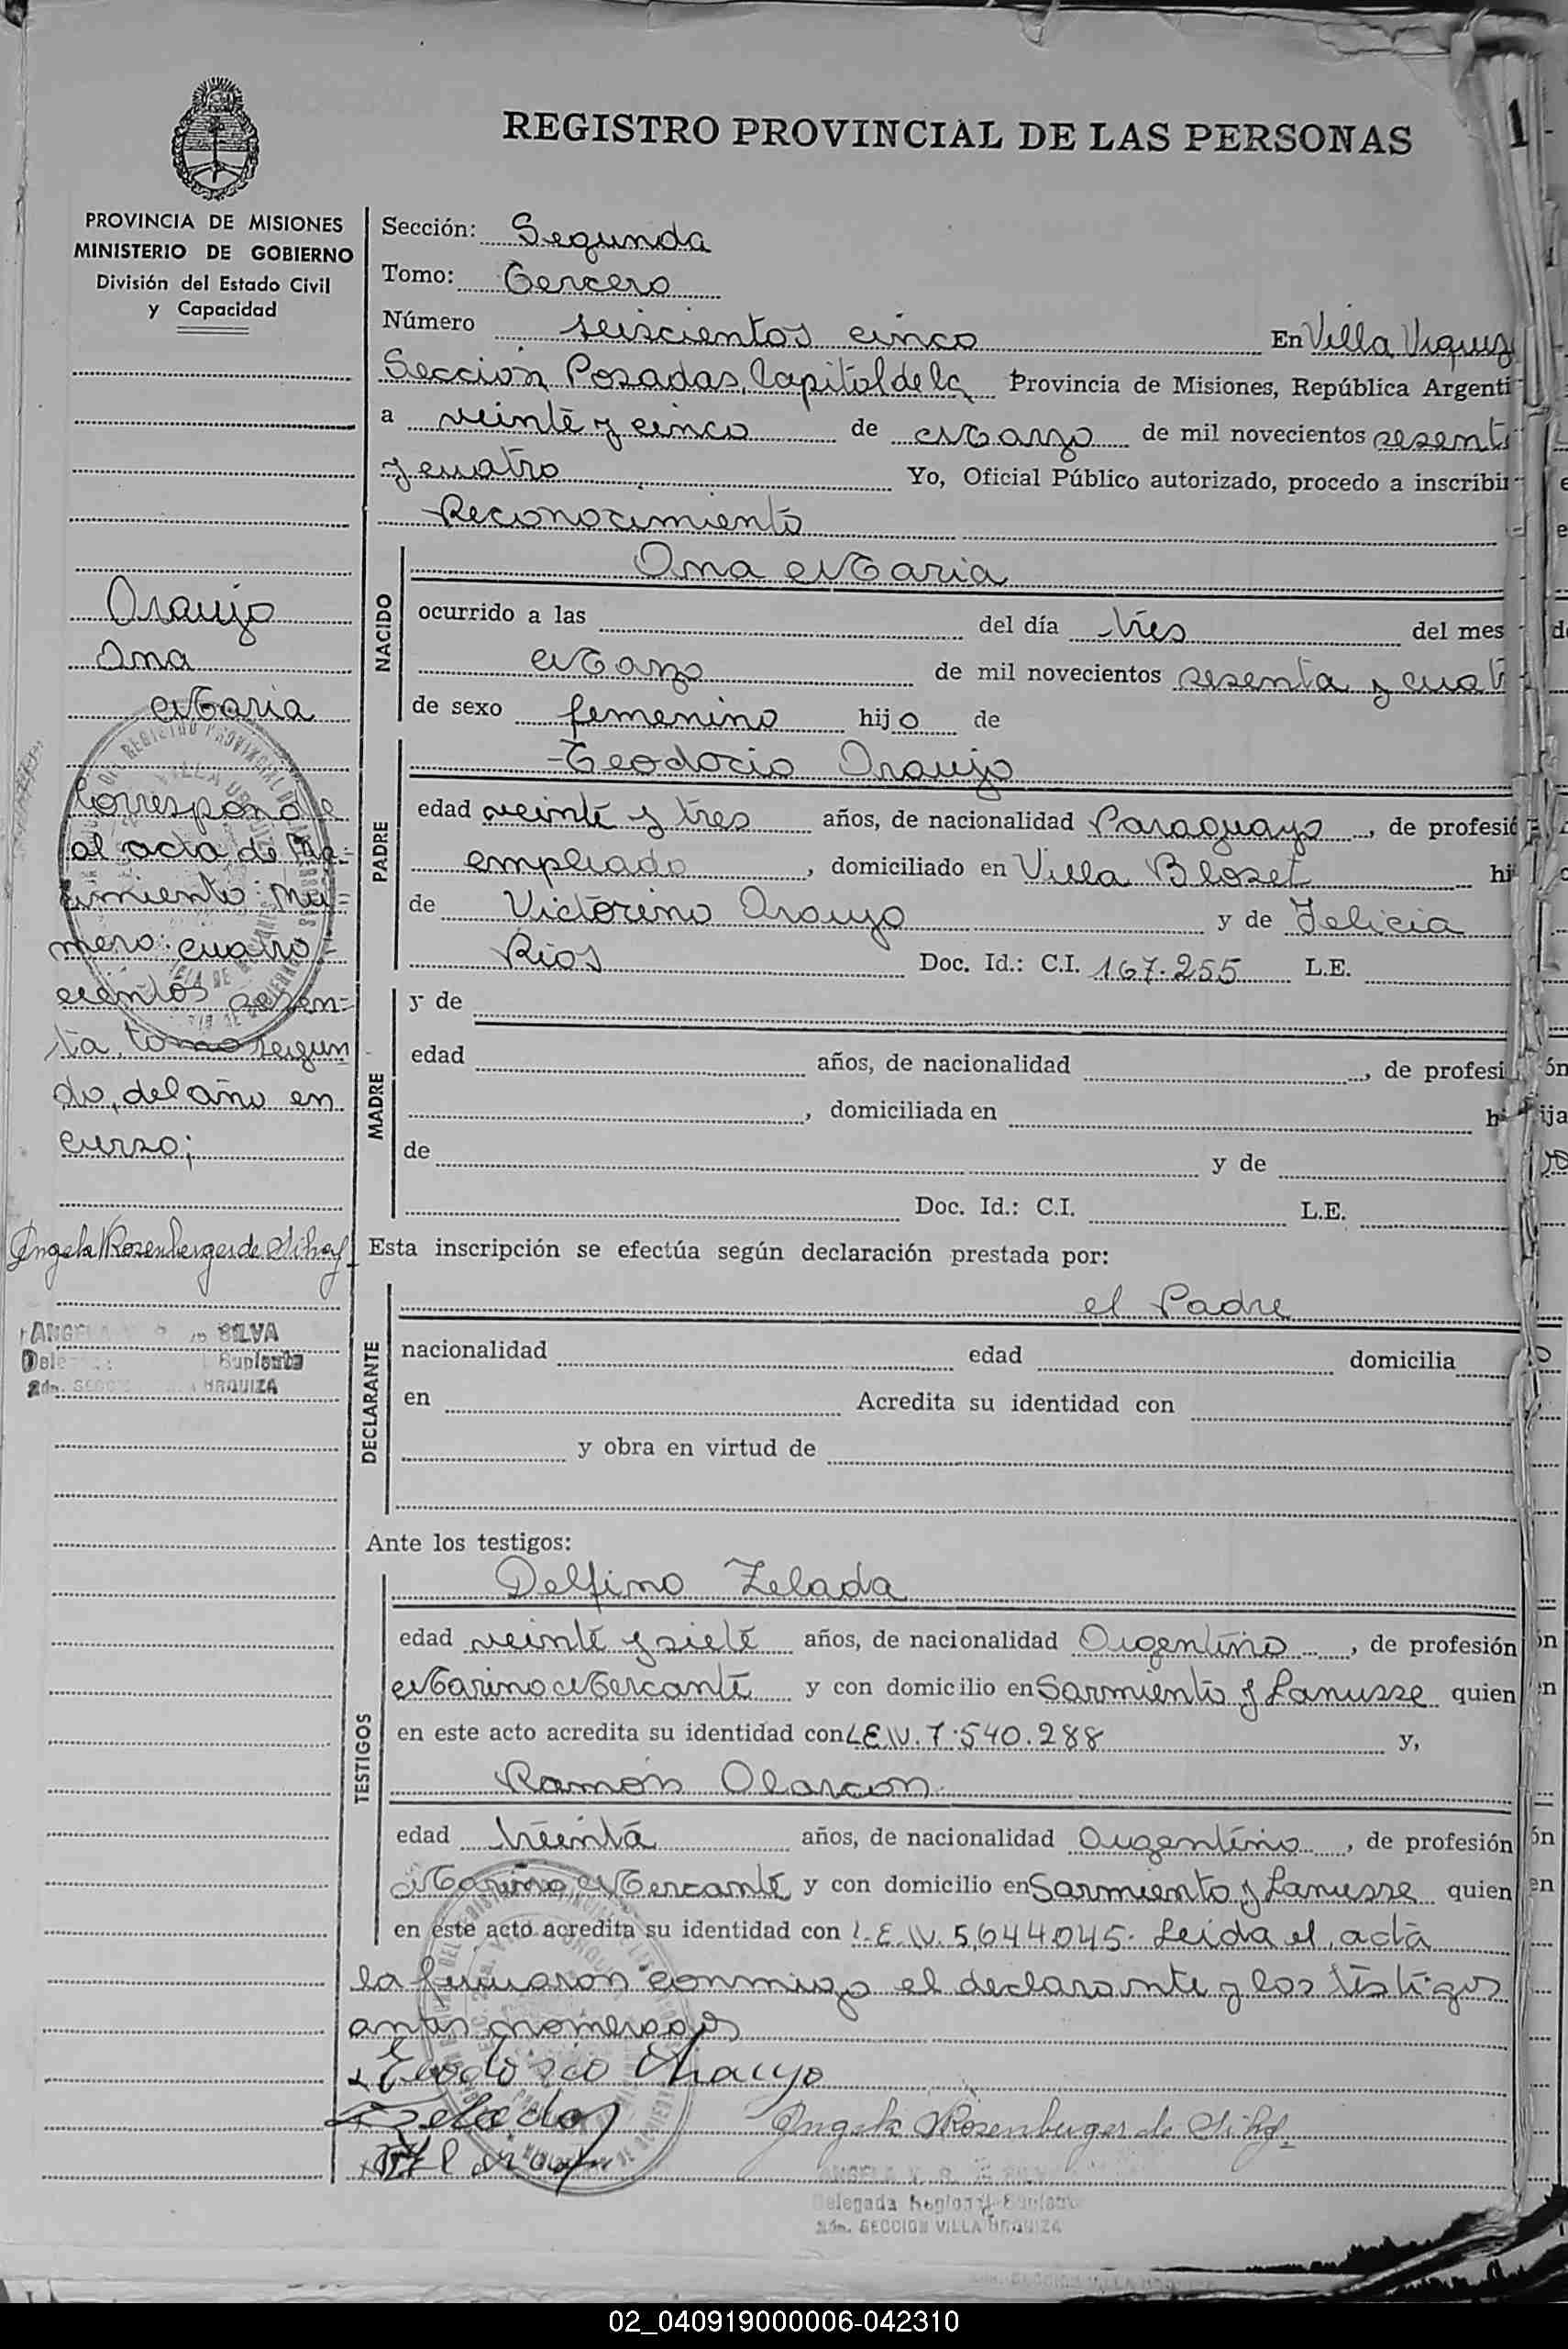 REGISTRO PROVINCIAL DE LAS PERSONAS
1
PROVINCIA DE MISIONES
MINISTERIO DE GOBIERNO
División del Estado Civil
y Capacidad
Araujo
Ana
Maria
Corresponde
al acta de Na=
cimiento Nú=
mero: cuatro-
cientos sesen=
ta, tomo segun
do, del año en
curso;
Angela Rosenberger de Silva
SILVA
Suplente
URQUIZA
Sección: Segunda
Tomo: Tercero
Número seiscientos cinco En Villa
Sección Posadas, Capital de la Provincia de Misiones, República Argenti
a veinte y cinco de Marzo de mil novecientos sesent
y cuatro Yo, Oficial Público autorizado, procedo a inscribir
Reconocimiento
NACIDO
Ana Maria
ocurrido a las del día tres del mes
Marzo de mil novecientos sesenta y cuat
de sexo femenino hija de
PADRE
Teodocio Araujo
edad veinte y tres años, de nacionalidad Paraguayo, de profesi
empleado, domiciliado en Villa Bloset hi
de Victorino Araujo y de Felicia
Rios Doc. Id.: C.I. 167.255 L.E.
MADRE
y de
edad años, de nacionalidad , de profesi
, domiciliada en hi
de y de
Doc. Id.: C.I. L.E.
Esta inscripción se efectúa según declaración prestada por:
DECLARANTE
el Padre
nacionalidad edad domicilia
en Acredita su identidad con
y obra en virtud de
Ante los testigos:
TESTIGOS
Delfino Zelada
edad veinte y siete años, de nacionalidad Argentino, de profesión
Marino Mercante y con domicilio en Sarmiento y Lanusse quien
en este acto acredita su identidad con L.E.N. 7.540.288 y,
Ramón Alarcon
edad treinta años, de nacionalidad Argentino, de profesión
Marino Mercante y con domicilio en Sarmiento y Lanusse quien
en este acto acredita su identidad con L.E.N. 5,644,045. Leida el acta
la firmaron conmigo el declarante y los testigos
antes nomerados
Teodosio Araujo
Zelada
Angela Rosenberger de Silva
Delegada Regional Suplente
SECCION VILLA URQUIZA
02_040919000006-042310